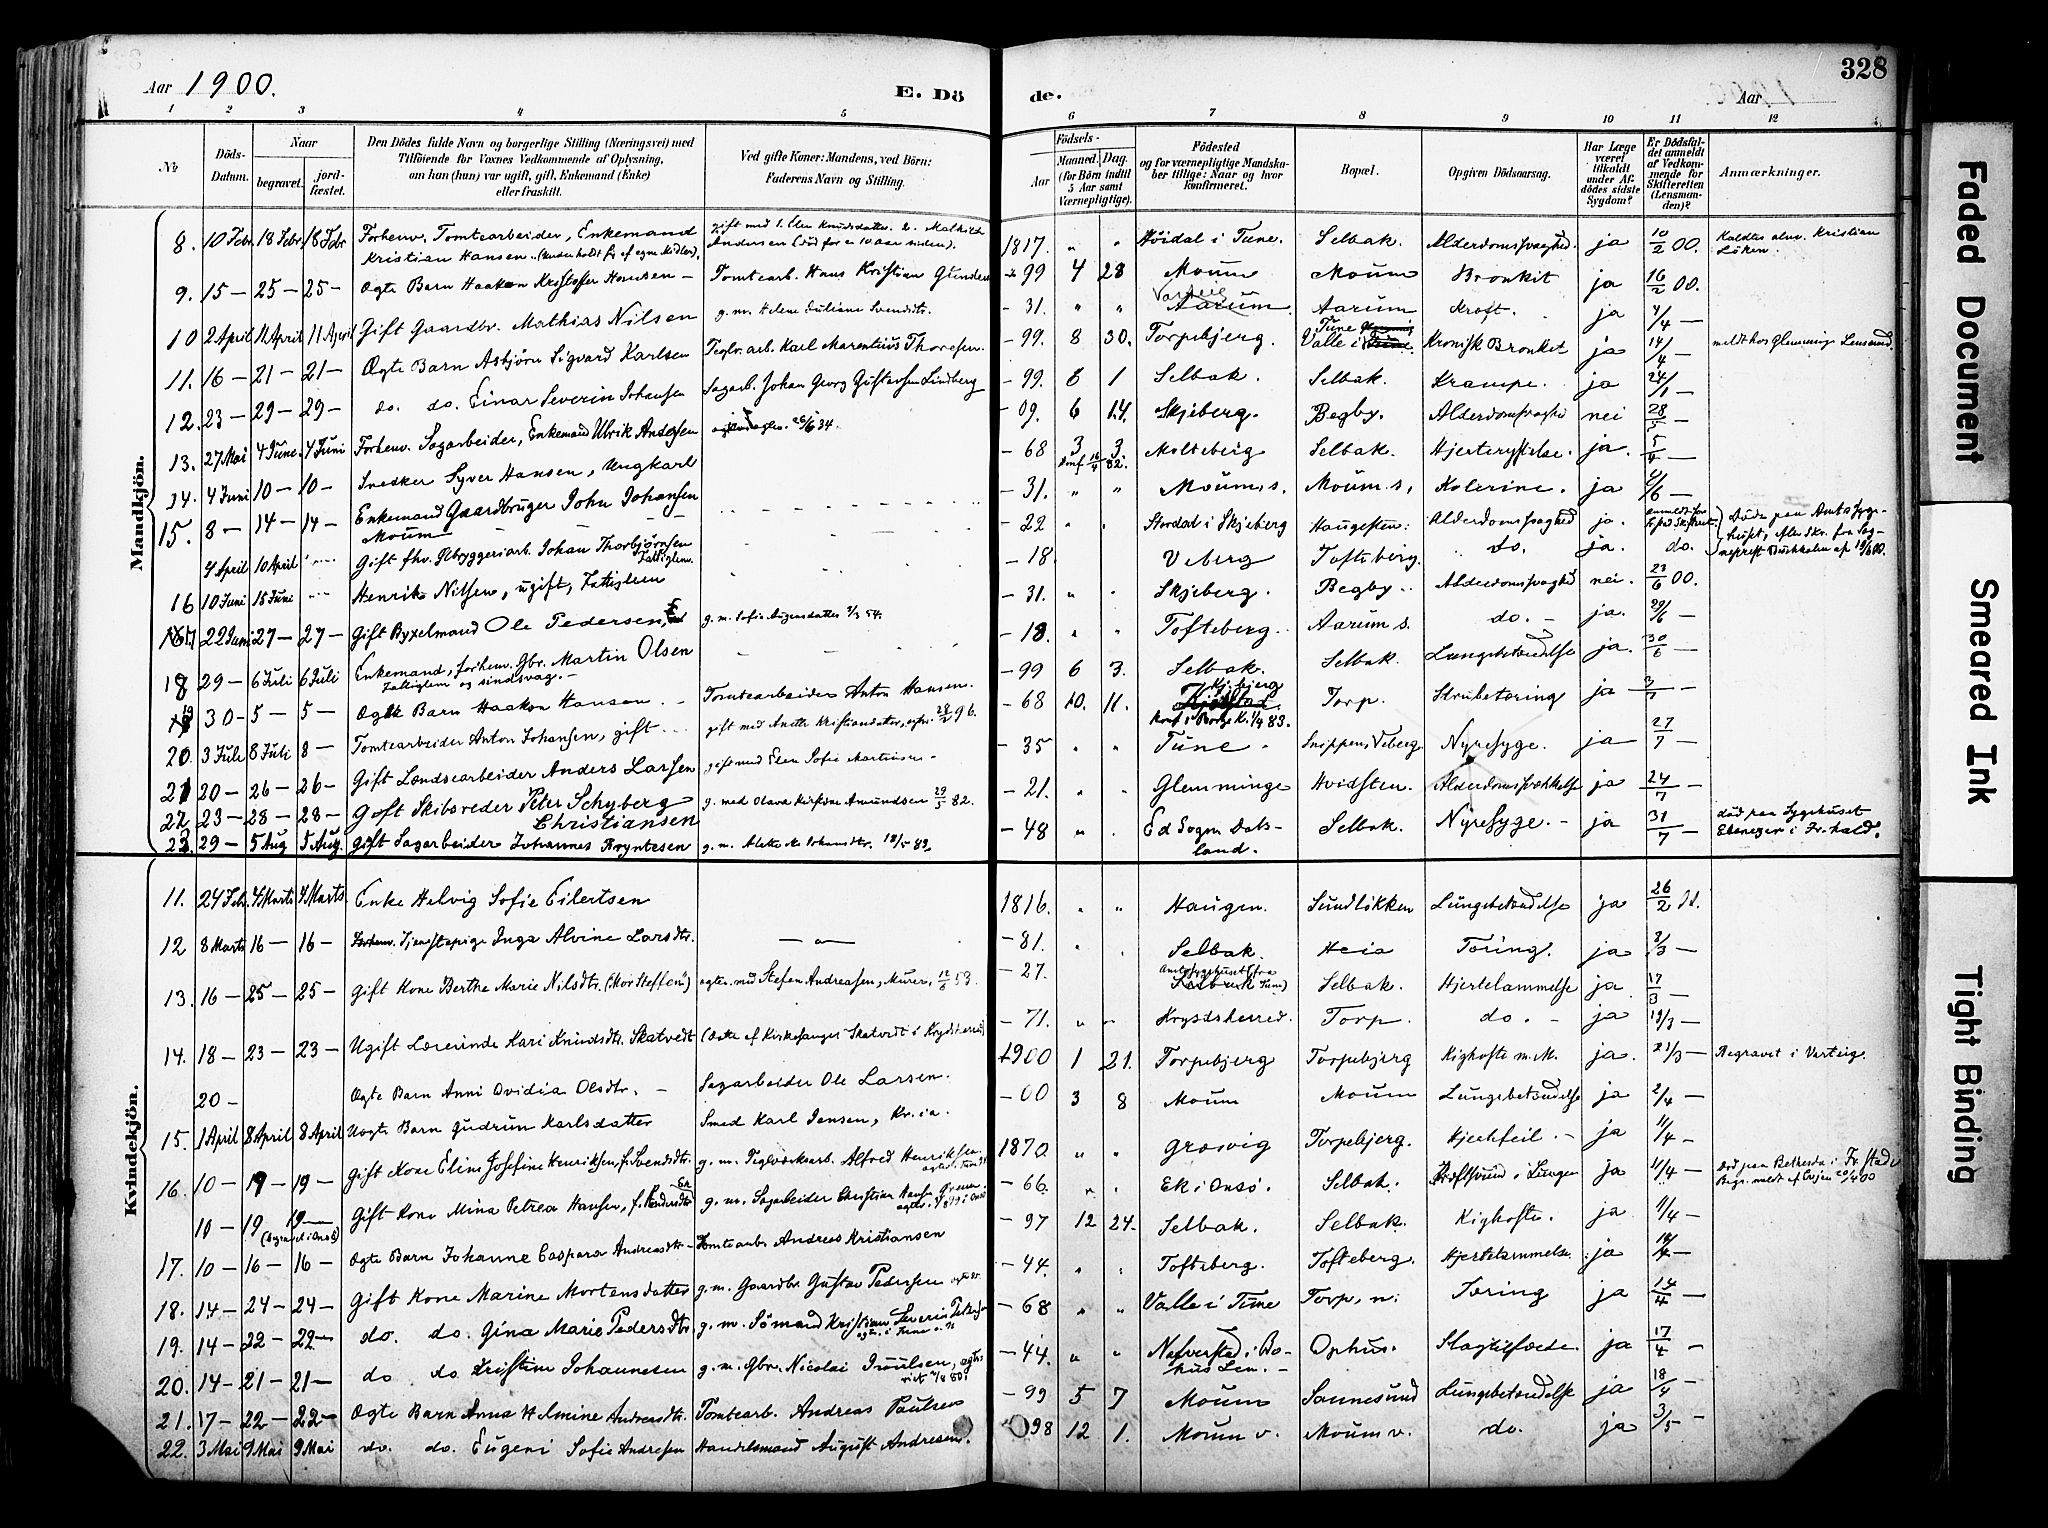 Aar 1900.
E. Dö
de.
Aar
328
1 2 3 4 5 6 7 8 9 10 11 12
No
Döds-Datum.
Naar
begravet.
jord-fæstet.
Den Dödes fulde Navn og borgerlige Stilling (Næringsvei) med
Tilföiende for Voxnes Vedkommende af Oplysning,
om han (hun) var ugift, gift, Enkemand (Enke)
eller fraskilt.
Ved gifte Koner: Mandens, ved Börn:
Faderens Navn og Stilling.
Födsels-
Aar
Maaned. Dag.
(for Börn indtil
5 Aar samt
Værnepligtige).
Födested
og for værnepligtige Mandska-
ber tillige: Naar og hvor
konfirmeret.
Bopæl.
Opgiven Dödsaarsag.
Har Læge
været
tilkaldt
under Af-
dödes sidste
Sygdom?
Er Dödsfal-
det anmeldt
af Vedkom-
mende for
Skifteretten
(Lensman-
den)?
Anmærkninger.
Mandkjön.
8. 10 Febr. 18 Febr. 18 Febr Forhenv. Tomtearbeider, Enkemand Kristian Hansen 1817. " " Höidal i Tune. Selbak. Alderdomssvaghed. ja 10/2 00. Kaldtes alm. Kristian Löken.
9. 15 — 25 — 25 — Ægte Barn Haakon Kristoffer Hansen — Tomtearb. Hans Kristian 99 4 28 Moum Moum Bronkit ja 16/2 00.
10 2 April 11 April 11 April Gift Gaardbr. Mathias Nilsen g.m. Helene Juliane Svendsdtr. — 31. " " Aarum. Aarum Kræft. ja 4/4 —
11. 16 — 21 — 21 — Ægte Barn Asbjörn Sigvard Karlsen Teglv.arb. Karl Marentius Thoresen. — 99. 8 30. Torpebjerg. Valle i Tune Kronisk Bronkit ja 14/4 —
12. 23 — 29 — 29 — do. do. Einar Severin Johansen Sagarb. Johan Georg Gustavsen Lindberg — 99. 6 1 Selbak. Selbak. Krampe. ja 24/1 —
13. 27 Mai 4 June. 4 Juni Forhenv. Sagarbeider, Enkemand Ulrik Andersen — 09. 6 14. Skjeberg. Begby. Alderdomssvaghed nei 28/5 —
14. 4 Juni 10 — 10 — Snedker Syver Hansen, Ungkarl — 68 3 3 Molteberg Selbak. ja. 5/4 —
15. 8 — 14 — 14 — Enkemand Gaardbruger John Johansen Moum — 31. " " Moum s. Moum s, Kolerine. ja 4/6 —
4 April 10 April Gift fhv. Ölbryggeriarb. Johan Thorbjörnsen — 22 Stordal i Skjeberg Alderdomssvaghed ja.
16 10 Juni 15 Juni Henrik Nilsen, ugift, Fattiglem — 18. Veberg Tofteberg. do. ja. do.
17 22 Juni 27 — 27 — Gift Byxelmand Ole Pedersen g.m. Sofie — 31. " Skjeberg. Begby. Alderdomssvaghed nei. 23/6 00.
18 29 — 6 Juli 6 Juli Enkemand, forhenv. Gbr. Martin Olsen Fattiglem og sindsvag. — — 18. " " Tofteberg. Aarum s. do. — ja. 29/6 —
19 30 — 5 — 5 — Ægte Barn Haakon Hansen Tomtearbeider Anton Hansen. — 99 6 3. Selbak. Selbak. Lungebetændelse ja. 30/6 —
20. 3 Juli 8 Juli 8 — Tomtearbeider Anton Johansen, gift gift med Anette — 68 10. 11. Torp. Strubetæring ja 3/7 —
21 20 — 26 — 26 — Gift Landsearbeider Anders Larsen gift med Elen Sofie — 35 " " Tune. Snippen, Veberg Nyresyge. ja 27/7 —
22 23 — 28 — 28 — Gift Skibsreder Peter Schyberg Christiansen g. med Olava Amundsen 29/5 82. — 21. " " Glemminge Hvidsten. ja 24/7 —
23. 29 — 5 Aug 5 Aug. Gift Sagarbeider Johannes Bryntesen g.m. Alette — 48 " Ed Sogn Dalsland. Selbak. Nyresyge. — ja 31/7 — död paa Sygehuset Ebenezer i Fr.hald.
Kvindekjön.
11. 24 Feb. 4 Marts 4 Marts. Enke Helvig Sofie Eilertsen 1816. " " Haugen. Sundlökken Lungebetændelse ja 26/2
12 8 Marts 16 — 16 — Forhenv. Tjenestepige Inga Alvine Larsdtr. — " — — 81. " Selbak. Heia Tæring. ja 2/3 —
13. 16 — 25 — 25 — Gift Kone Berthe Marie Nilsdtr. Stefen Andreassen, Murer, — 27. Selbak. Hjertelammelse ja 17/3 —
14. 18 — 23 — 23 — Ugift Lærerinde Kari Knudsdtr. Skatvedt (Datter af Kirkesanger Skatvedt i Krydsherred) — 71. " " Krydsherred. Torp. do. — ja 19/3 —
20 — Ægte Barn Anni Ovidia Olsdtr. — Sagarbeider Ole Larsen. 1900 1 21. Torpebjerg Torpebjerg Kighoste m.M. ja. 21/3 — Begravet i Varteig.
15. 1 April 8 April 8 April Uægte Barn Gudrun Karlsdatter Smed Karl Jensen, Kr.ia. — 00 3 8 Moum Moum Lungebetændelse ja 2/4 —
16. 10 — 19 — 19 — Gift Kone Elise Josefine Henriksen, f. Svendsdtr. g.m. Teglværksarb. Alfred Henriksen 1870. " " Græsvig Torpebjerg. Hjertefeil. — ja 11/4 —
10 — 19 19 — Gift Kone Mina Petrea Hansen, g.m. Sagarbeider Christian — 66. " " Ek i Onsö. Selbak. ja 11/4 —
17. 10 — 16 — 16 — Ægte Barn Johanne Caspara Andreasdtr — Tomtearb. Andreas Kristiansen — 97 12 24. Selbak. Selbak. Kighoste. ja 11/4 —
18. 14 — 24 — 24 — Gift Kone Marine Mortensdatter g.m. Gaardbr Gustav Pedersen — 44. " " Tofteberg. Tofteberg. Hjertelammelse. ja
19. 14 — 22 — 22 — do. do. Gina Marie Pedersdtr g.m. Sömand Kristian Severin — 68 " " Valle i Tune Torp, n. Tæring ja 14/4 —
20. 14 — 21 — 21 — do do Kristine Johannesen g.m. Gbr. Nicolai — 44. " " Ophus. Slagtilfælde. ja 17/4 —
21. 17 — 22 — 22 — Ægte Barn Anna Andreasdtr. Tomtearb. Andreas Paulsen — 99 5 7 Moum Sannesund Lungebetændelse ja 18/4 —
22. 3 Mai 9 Mai 9 Mai do. do. Eugeni Sofie Andresen Handelsmand August Andresen. 98 12 1. Moum v. Moum v. do. ja 3/5 —
Faded Document
Smeared Ink
Tight Binding